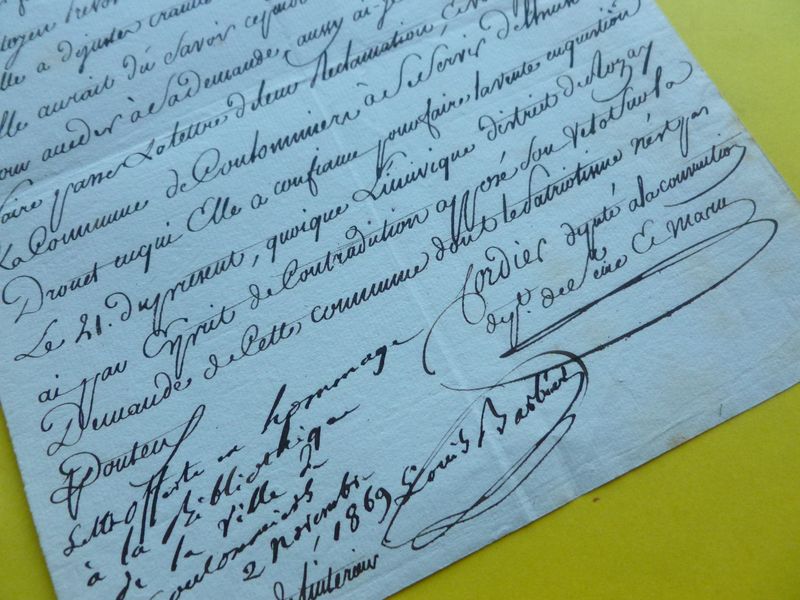 lle a dejuster
lle aurait dû Savoir
pour acceder à Sa demande, aussy ai-je
faire passer La lettre de leur Reclamation, &
La Commune de Coulommiers à Se Servir d'
Drouet en qui Elle a confiance pour faire la vente en question
Le 21. du present, quoique L'inivique district de Rozay
ai par Esprit de Contradiction apposé son veto Sur la
Demande de Cette commune dont le Patriotisme n'est pas
Douteux
Cordier député a la convention
dept. de Seine Et Marne
Lettre offerte en hommage
à la Bibliothèque
de la ville de
Coulommiers
2 novembre
1869 Louis Barbier